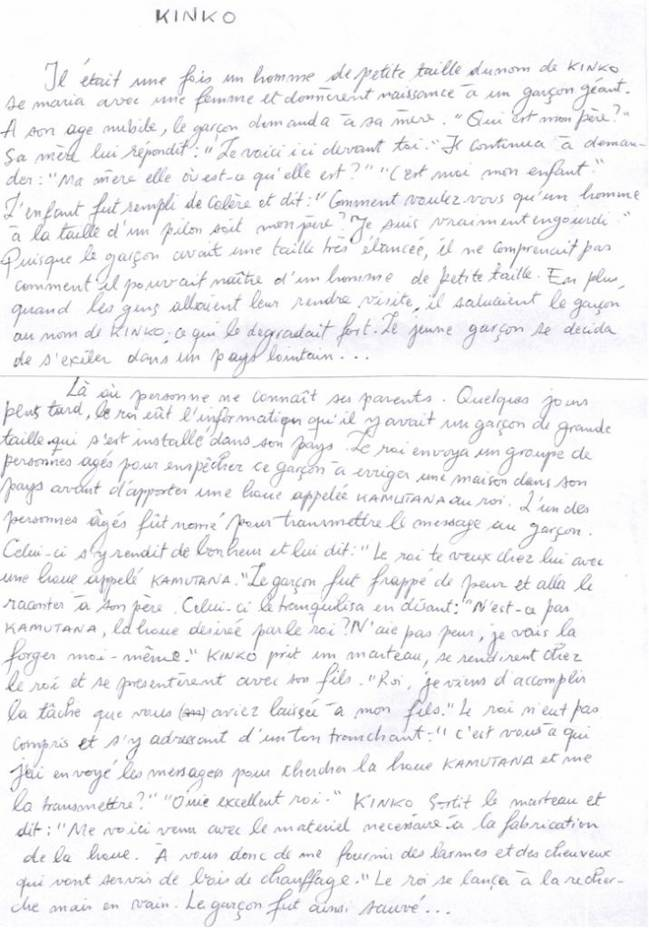 KINKO
Il était une fois un homme de petite taille du nom de KINKO
se maria avec une femme et donnèrent naissance à un garçon géant.
A son age nubile, le garçon demanda à sa mère. "Qui est mon père?"
Sa mère lui répondit: "Le voici ici devant toi." Il continua à deman-
der: "Ma mère elle où est-ce qu'elle est?" "C'est moi mon enfant."
L'enfant fut rempli de colère et dit: "Comment voulez-vous qu'un homme
à la taille d'un pilon soit mon père? Je suis vraiment engourdi."
Puisque le garçon avait une taille très élancée, il ne comprenait pas
comment il pouvait naître d'un homme de petite taille. En plus,
quand les gens allaient leur rendre visite, il saluaient le garçon
au nom de KINKO; ce qui le degradait fort. Le jeune garçon se decida
de s'exiler dans un pays lointain...
Là où personne ne connaît ses parents. Quelques jours
plus tard, le roi eût l'information qu'il y avait un garçon de grande
taille qui s'est installé dans son pays. Le roi envoya un groupe de
personnes agés pour empêcher ce garçon à erriger une maison dans son
pays avant d'apporter une houe appelée KAMUTANA au roi. L'un des
personnes âgés fût nomé pour transmettre le message au garçon.
Celui-ci s'y rendit de bonheur et lui dit: "Le roi te veux chez lui avec
une houe appelé KAMUTANA." Le garçon fut frappé de peur et alla le
raconter à son père. Celui-ci le tranquilisa en disant: "N'est-ce pas
KAMUTANA, la houe desirée par le roi? N'aie pas peur, je vais la
forger moi-même." KINKO prit un marteau, se rendirent chez
le roi et se presentèrent avec son fils. "Roi, je viens d'accomplir
la tâche que vous aviez laissée à mon fils." Le roi n'eut pas
compris et s'y adressant d'un ton tranchant: "C'est vous à qui
j'ai envoyé les messagers pour chercher la houe KAMUTANA et me
la transmettre?" "Ouie excellent roi." KINKO sortit le marteau et
dit: "Me voici venu avec le materiel necessaire à la fabrication
de la houe. A vous donc de me fournir des larmes et des cheuveux
qui vont servir de bois de chauffage." Le roi se lança à la recher-
che mais en vain. Le garçon fut ainsi sauvé...